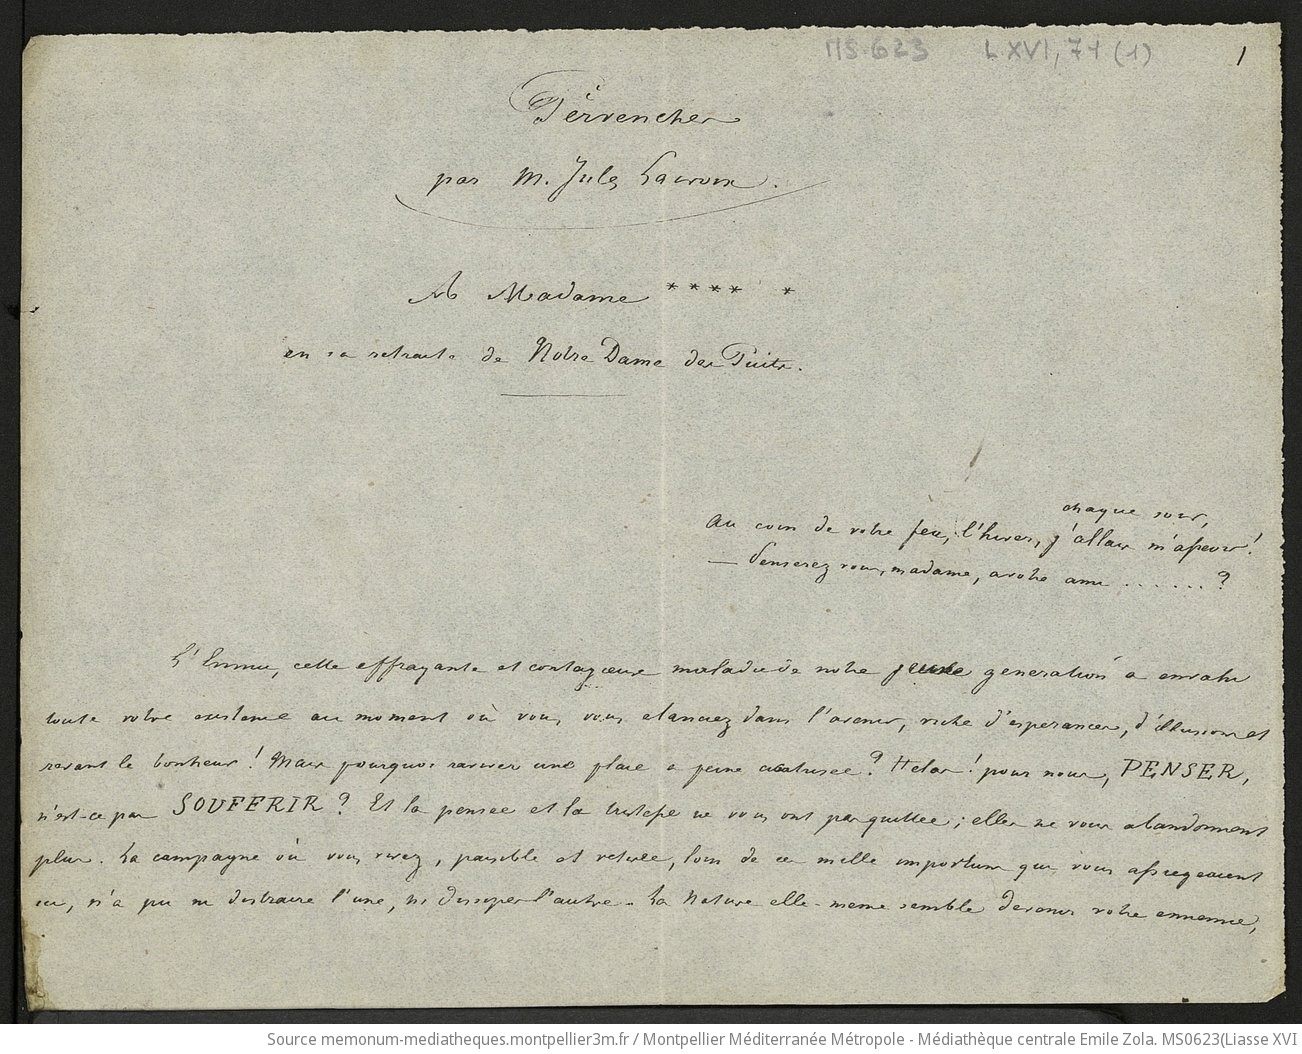 MS 623 LXVI, 71 (1) 1
Pervenches
par M. Jules Lacroix.
A Madame **** *
en sa retraite de Notre Dame des Puits.
chaque soir,
Au coin de votre feu, l'hiver, j'allais m'asseoir!
— Penserez vous, madame, a votre ami ......?
L'Ennui, cette effrayante et contagieuse maladie de notre jeune generation a envahi
toute votre existence au moment où vous vous elanciez dans l'avenir, riche d'esperances, d'illusions et
revant le bonheur! Mais pourquoi raviver une plaie a peine cicatrisee? Helas! pour nous, PENSER,
n'est-ce pas SOUFFRIR? Et la pensee et la tristesse ne vous ont pas quittee; elles ne vous abandonnent
plus. La campagne où vous vivez, paisible et retiree, loin de ces mille importuns qui vous assiegeaient
ici, n'a pu ni distraire l'une, ni dissiper l'autre. La Nature elle-meme semble devenir votre ennemie,
Source memonum-mediatheques.montpellier3m.fr / Montpellier Méditerranée Métropole - Médiathèque centrale Emile Zola. MS0623(Liasse XVI